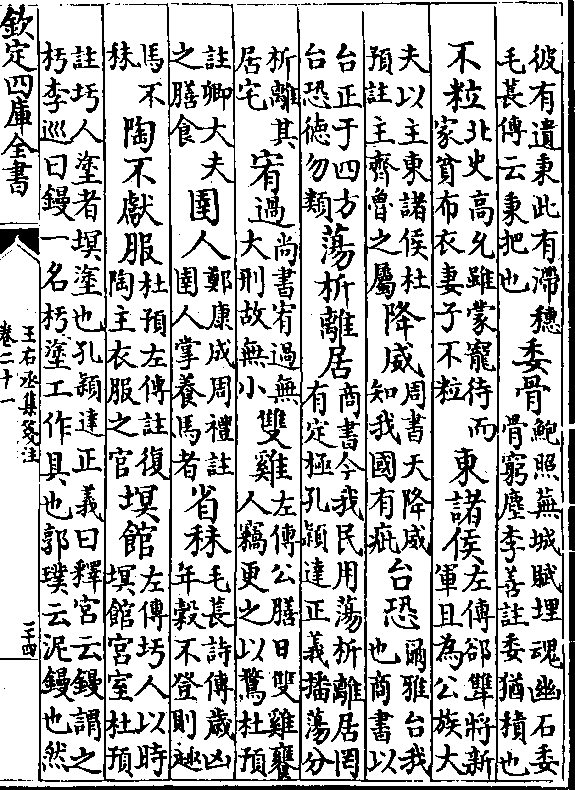 彼有遺秉此有滯穗
毛萇傳云秉把也
委骨
鮑照蕪城賦埋魂幽石委
骨窮塵李善註委猶積也
不粒
北史高允雖蒙寵待而
家貧布衣妻子不粒
東諸侯
左傳郤犨將新
軍且為公族大
夫以主東諸侯杜
預註主齊魯之屬
降威
周書天降威
知我國有疵
台恐
爾雅台我
也商書以
台正于四方
台恐德勿類
蕩析離居
商書今我民用蕩析離居罔
有定極孔穎達正義播蕩分
析離其
居宅
宥過
尚書宥過無
大刑故無小
雙雞
左傳公膳日雙雞饔
人竊更之以鶩杜預
註卿大夫
之膳食
圉人
鄭康成周禮註
圉人掌養馬者
省秣
毛萇詩傳歲凶
年穀不登則趣
馬不
秣
陶不獻服
杜預左傳註復
陶主衣服之官
塓館
左傳圬人以時
塓館宮室杜預
註圬人塗者塓塗也孔穎達正義曰釋宮云鏝謂之
杇李巡曰鏝一名杇塗工作具也郭璞云泥鏝也然
欽定四庫全書
王右丞集箋注
卷二十一
二十四